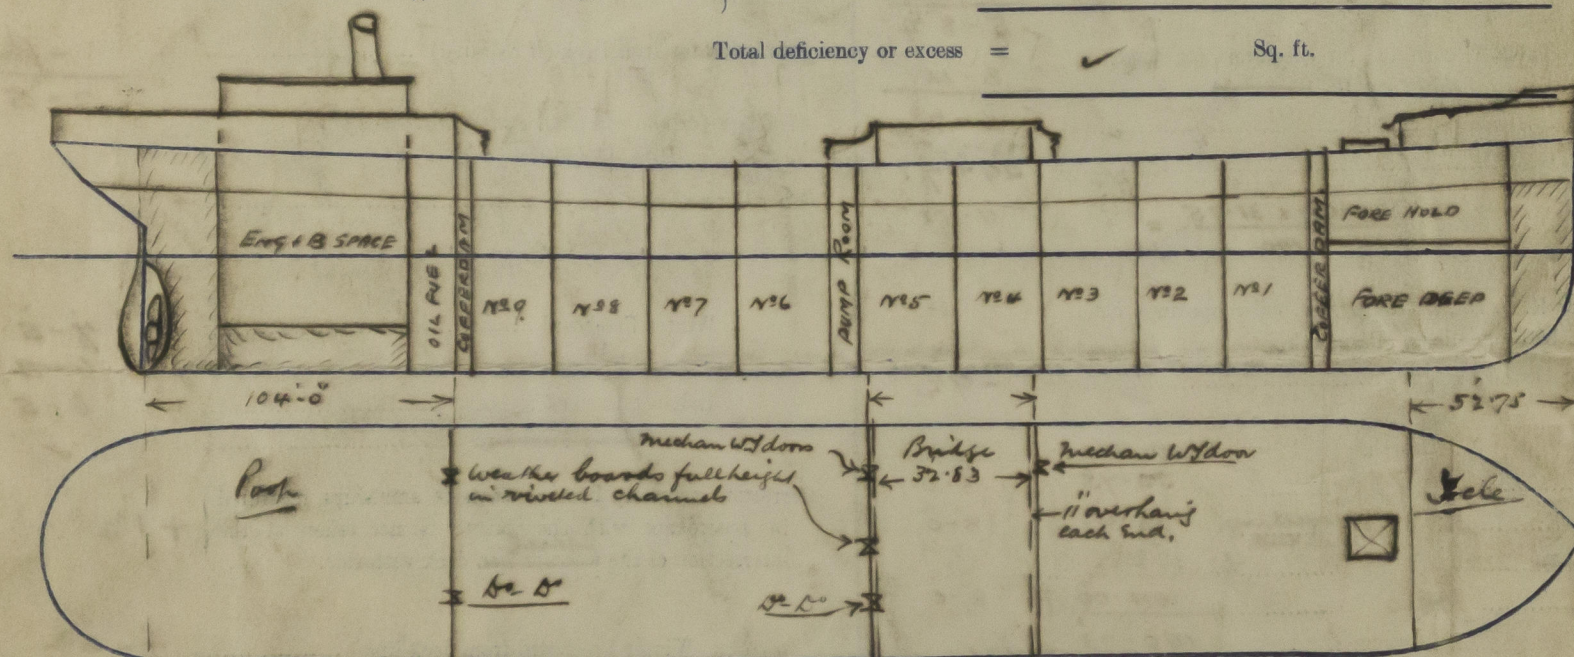 Total deficiency or excess = ✓ Sq. ft.
Eng & B SPACE
OIL FUEL
COFFERDAM
No 9
No 8
No 7
No 6
PUMP ROOM
No 5
No 4
No 3
No 2
No 1
COFFERDAM
FORE HOLD
FORE DEEP
104'-0"
52.75
Poop
weather boards full height
in riveted channels
Do Do
mechan WT doors
Do Do
Bridge
32.83
mechan WT door
11" overhang
each end.
Fcle